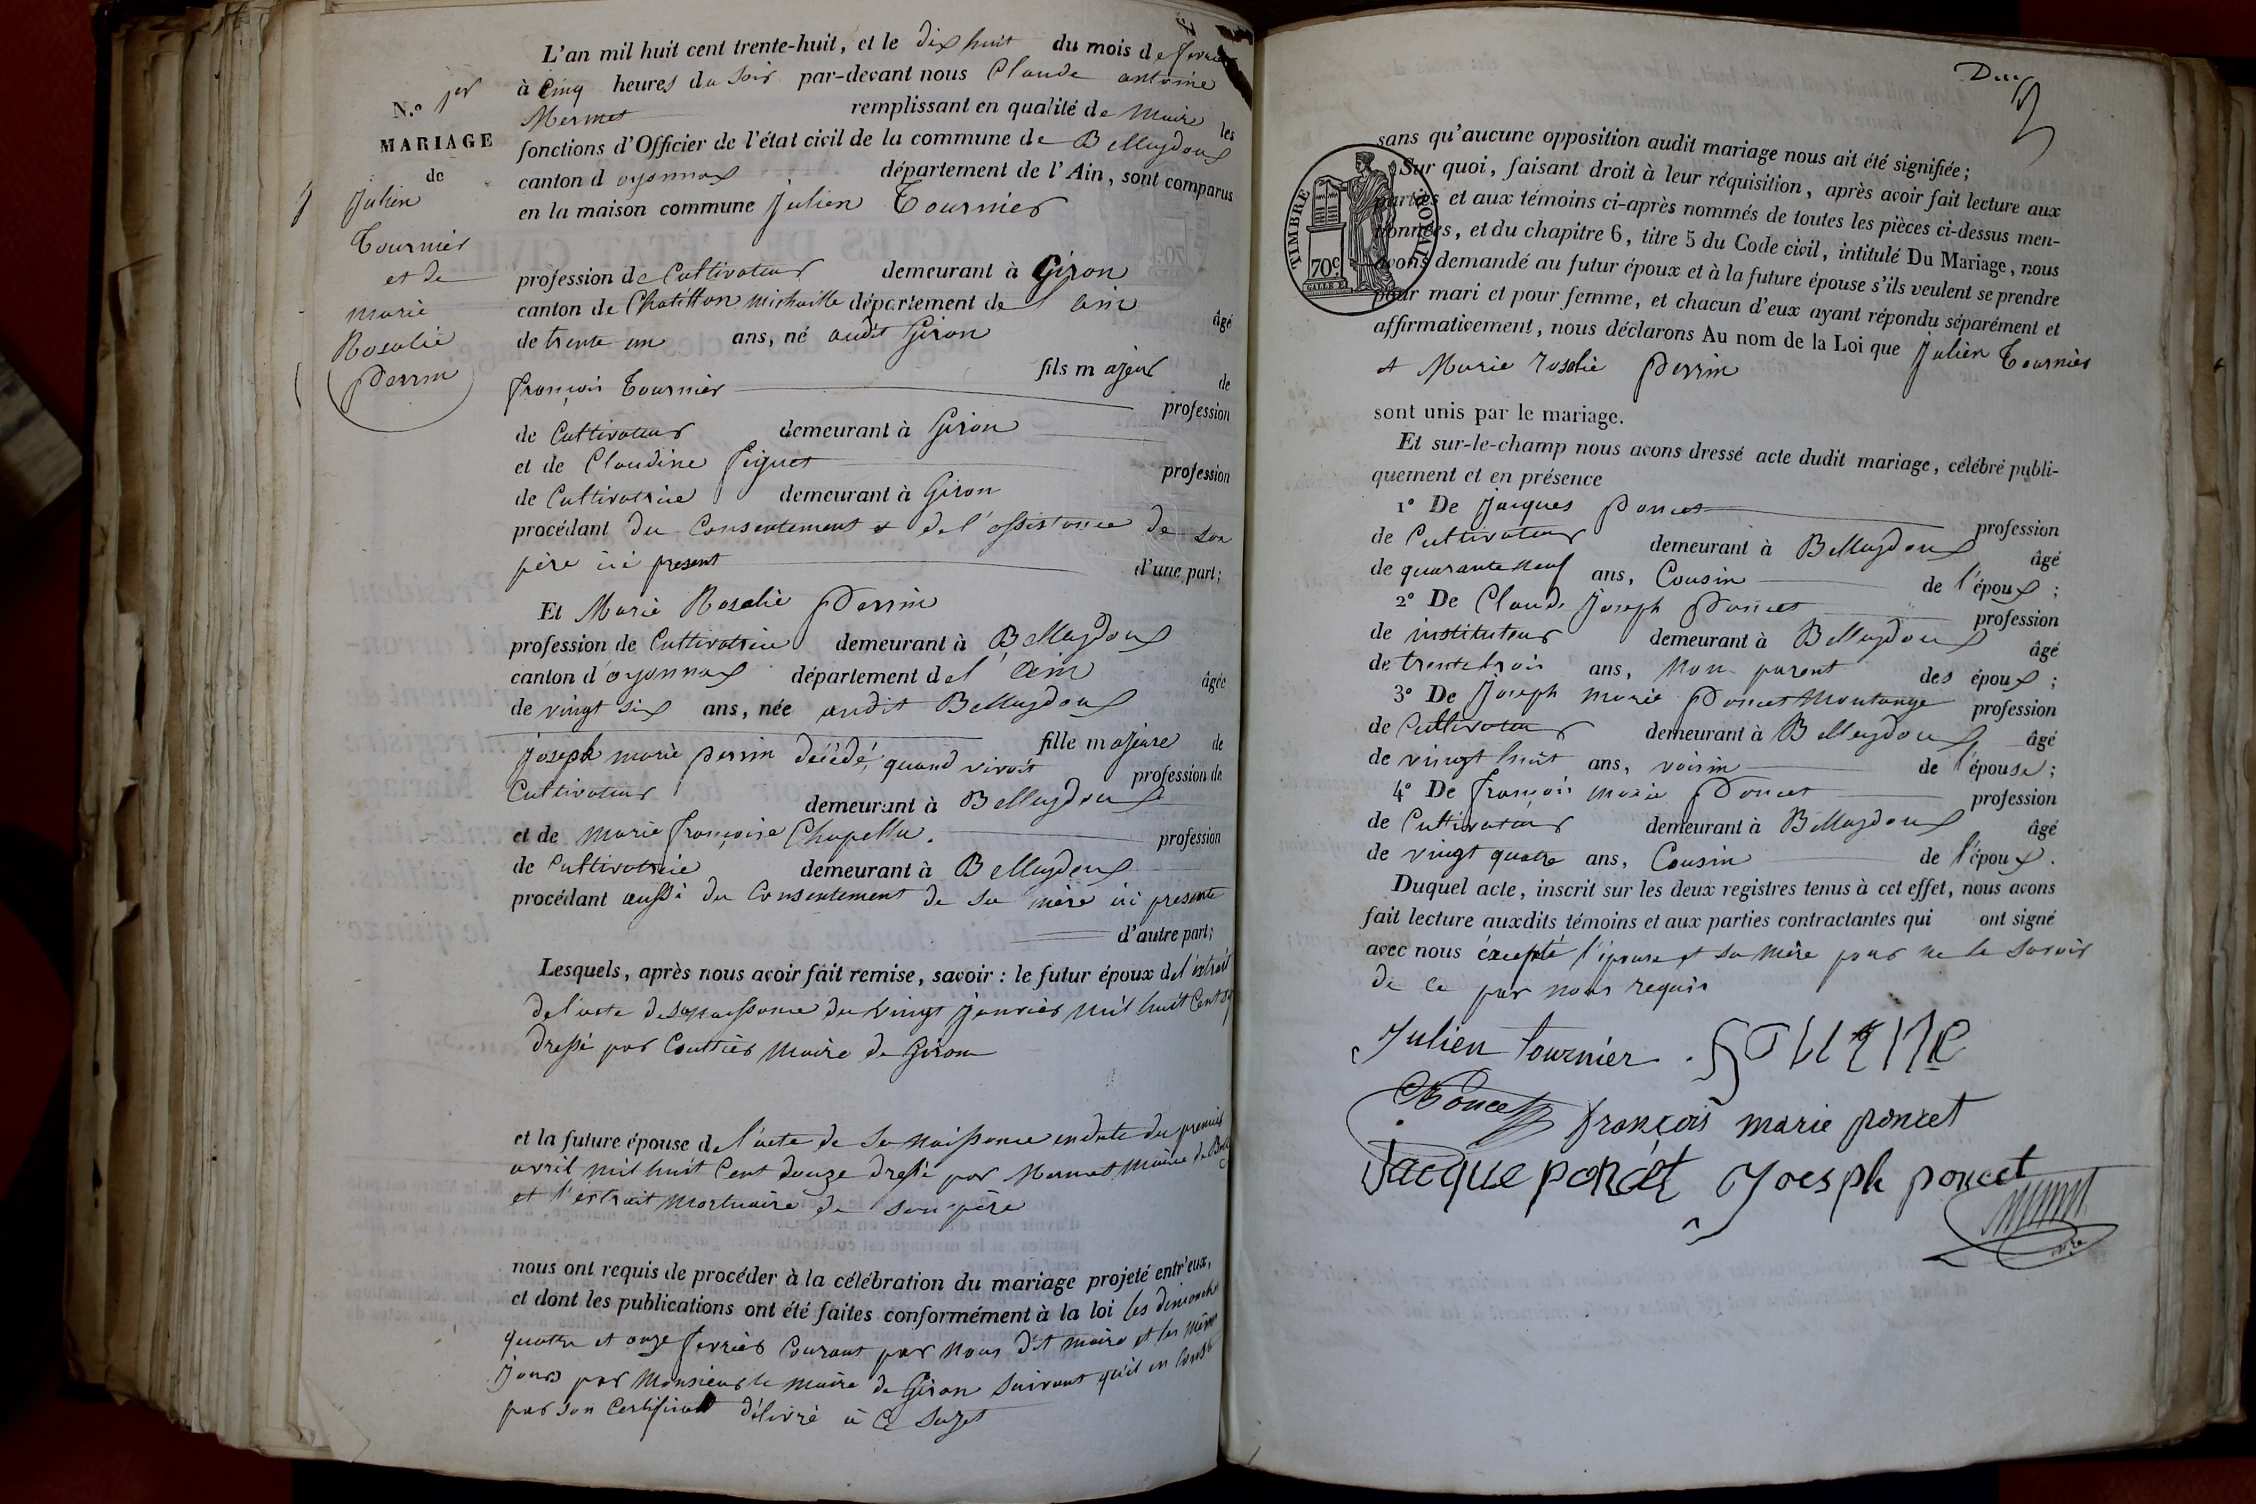 L'an mil huit cent trente-huit, et le dix huit du mois de fevrier
à Cinq heures du soir par-devant nous Claude antoine
Mermet remplissant en qualité de Maire les
fonctions d'Officier de l'état civil de la commune de Belleydoux
canton d oyonnax département de l'Ain, sont comparus
en la maison commune Julien Tournier
N.º 1er
MARIAGE
de
Julien
Tournier
et de
Marie
Rosalie
Perrin
profession de Cultivateur demeurant à Giron
canton de Chatillon michaille département de l ain âgé
de trente un ans, né audit Giron
fils majeur de
françois Tournier profession
de Cultivateur demeurant à Giron
et de Claudine profession
de Cultivatrice demeurant à Giron
procédant du Consentement & de l'assistance de son
père ici présent d'une part;
Et Marie Rosalie Perrin
profession de Cultivatrice demeurant à Belleydoux
canton d'oyonnax département de l' Ain âgée
de vingt six ans, née audit Belleydoux
fille majeure de
Joseph marie perrin décédé, quand vivoit profession de
Cultivateur demeurant à Belleydoux
et de marie françoise Chapellu. profession
de Cultivatrice demeurant à Belleydoux
procédant aussi du Consentement de sa mère ici presente
d'autre part;
Lesquels, après nous avoir fait remise, savoir : le futur époux de l'extrait
de l'acte de sa naissance du vingt janvier mil huit Cent
dressé par Couttier Maire de Giron
et la future épouse de l'acte de sa naissance en date du premier
avril mil huit Cent douze dressé par Mermet Maire de
et l'extrait mortuaire de son père
nous ont requis de procéder à la célébration du mariage projeté entr'eux,
et dont les publications ont été faites conformément à la loi les dimanche
quatre et onze fevrier Courant par nous dit maire et les mêmes
jours par Monsieur le maire de Giron suivant qu'il en
par son Certificat délivré à ce sujet
TIMBRE ROYAL
70c
sans qu'aucune opposition audit mariage nous ait été signifiée;
Sur quoi, faisant droit à leur réquisition, après avoir fait lecture aux
parties et aux témoins ci-après nommés de toutes les pièces ci-dessus men-
tionnées, et du chapitre 6, titre 5 du Code civil, intitulé Du Mariage, nous
avons demandé au futur époux et à la future épouse s'ils veulent se prendre
pour mari et pour femme, et chacun d'eux ayant répondu séparément et
affirmativement, nous déclarons Au nom de la Loi que Julien Tournier
& Marie rosalie Perrin
sont unis par le mariage.
Et sur-le-champ nous avons dressé acte dudit mariage, célébré publi-
quement et en présence
1º De Jacques Poncet profession
de Cultivateur demeurant à Belleydoux âgé
de quarante neuf ans, Cousin de l'époux ;
2º De Claude Joseph Poncet profession
de instituteur demeurant à Belleydoux âgé
de trente trois ans, non parent des époux ;
3º De Joseph Marie Poncet Montange profession
de Cultivateur demeurant à Belleydoux âgé
de vingt huit ans, voisin de l'épouse ;
4º De françois marie Poncet profession
de Cultivateur demeurant à Belleydoux âgé
de vingt quatre ans, Cousin de l'époux.
Duquel acte, inscrit sur les deux registres tenus à cet effet, nous avons
fait lecture auxdits témoins et aux parties contractantes qui ont signé
avec nous éxcepté l'épouse et sa mère pour ne le savoir
de ce par nous requis
Julien tournier
Poncet françois marie poncet
Jacque poncet Joesph poncet